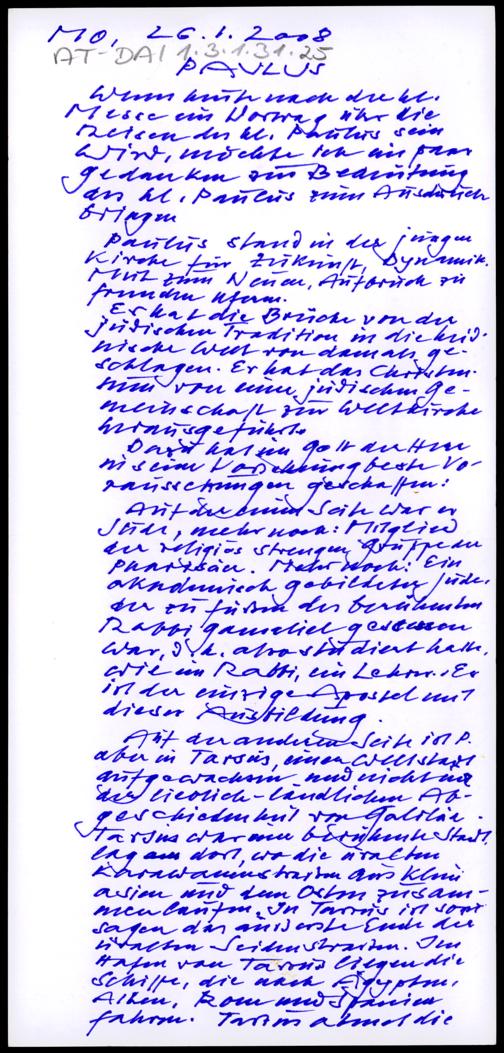 Mo, 26.1.2008
AT-DAI 1.3.1.31.25
PAULUS
Wenn heute nach der hl.
Messe ein Vortrag über die
Reisen des hl. Paulus sein
wird, möchte ich ein paar
Gedanken zur Bedeutung
des hl. Paulus zum Ausdruck
bringen
Paulus stand in der jungen
Kirche für Zukunft, Dynamik.
Mut zum Neuen, Aufbruch zu
fremden Ufern.
Er hat die Brücke von der
jüdischen Tradition in die heid-
nische Welt von damals ge-
schlagen. Er hat das Christen-
tum von einer jüdischen Ge-
meinschaft zur Weltkirche
herausgeführt.
Dazu hat ihm Gott der Herr
in seiner Vorsehung beste Vo-
raussetzungen geschaffen:
Auf der einen Seite war er
Jude, mehr noch: Mitglied
der religiös strengen Gruppe der
Pharisäer. Mehr noch: Ein
akademisch gebildeter Jude,
der zu füßen des berühmten
Rabbi Gamaliel gesessen
war, d.h. also studiert hatte,
wie ein Rabbi, ein Lehrer. Er
ist der einzige Apostel mit
dieser Ausbildung.
Auf der anderen Seite ist P.
aber in Tarsus, einer Weltstadt
aufgewachsen und nicht in
der lieblich-ländlichen Ab-
geschiedenheit von Galiläa.
Tarsus war eine berühmte Stadt,
lag dort, wo die uralten
Karawanenstraßen aus Klein
asien und dem Osten zusam-
menlaufen. In Tarsus ist sozu
sagen das äusserste Ende der
uralten Seidenstraßen. Im
Hafen von Tarsus liegen die
Schiffe, die nach Ägypten,
Athen, Rom und Spanien
fahren. Tarsus atmet die